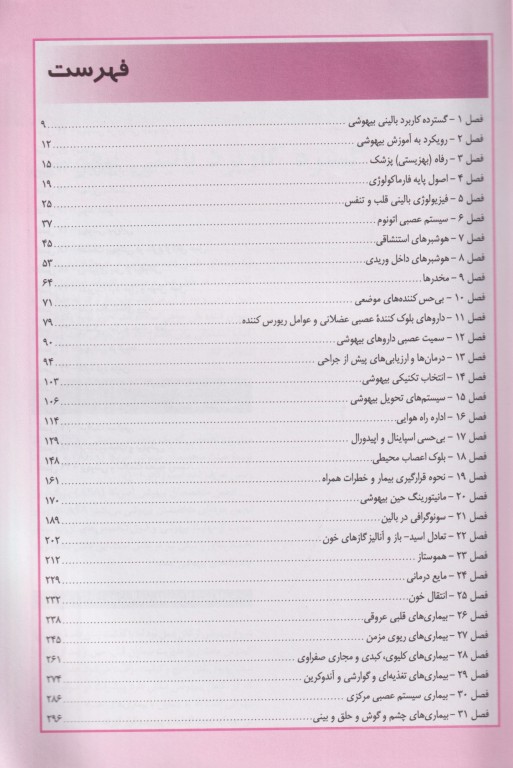 فهرست
فصل ۱ - گسترده کاربرد بالینی بیهوشی ........ ۹
فصل ۲ - رویکرد به آموزش بیهوشی ........ ۱۲
فصل ۳ - رفاه (بهزیستی) پزشک ........ ۱۵
فصل ۴ - اصول پایه فارماکولوژی ........ ۱۹
فصل ۵ - فیزیولوژی بالینی قلب و تنفس ........ ۲۵
فصل ۶ - سیستم عصبی اتونوم ........ ۳۷
فصل ۷ - هوشبرهای استنشاقی ........ ۴۵
فصل ۸ - هوشبرهای داخل وریدی ........ ۵۳
فصل ۹ - مخدرها ........ ۶۴
فصل ۱۰ - بی‌حس کننده‌های موضعی ........ ۷۱
فصل ۱۱ - داروهای بلوک کنندهٔ عصبی عضلانی و عوامل ریورس کننده ........ ۷۹
فصل ۱۲ - سمیت عصبی داروهای بیهوشی ........ ۹۰
فصل ۱۳ - درمان‌ها و ارزیابی‌های پیش از جراحی ........ ۹۴
فصل ۱۴ - انتخاب تکنیکی بیهوشی ........ ۱۰۳
فصل ۱۵ - سیستم‌های تحویل بیهوشی ........ ۱۰۶
فصل ۱۶ - اداره راه هوایی ........ ۱۱۴
فصل ۱۷ - بی‌حسی اسپاینال و اپیدورال ........ ۱۲۹
فصل ۱۸ - بلوک اعصاب محیطی ........ ۱۴۸
فصل ۱۹ - نحوه قرارگیری بیمار و خطرات همراه ........ ۱۶۱
فصل ۲۰ - مانیتورینگ حین بیهوشی ........ ۱۷۰
فصل ۲۱ - سونوگرافی در بالین ........ ۱۸۹
فصل ۲۲ - تعادل اسید- باز و آنالیز گازهای خون ........ ۲۰۲
فصل ۲۳ - هموستاز ........ ۲۱۲
فصل ۲۴ - مایع درمانی ........ ۲۲۹
فصل ۲۵ - انتقال خون ........ ۲۳۲
فصل ۲۶ - بیماری‌های قلبی عروقی ........ ۲۳۸
فصل ۲۷ - بیماری‌های ریوی مزمن ........ ۲۴۵
فصل ۲۸ - بیماری‌های کلیوی، کبدی و مجاری صفراوی ........ ۲۶۱
فصل ۲۹ - بیماری‌های تغذیه‌ای و گوارشی و آندوکرین ........ ۲۷۴
فصل ۳۰ - بیماری سیستم عصبی مرکزی ........ ۲۸۶
فصل ۳۱ - بیماری‌های چشم و گوش و حلق و بینی ........ ۲۹۶